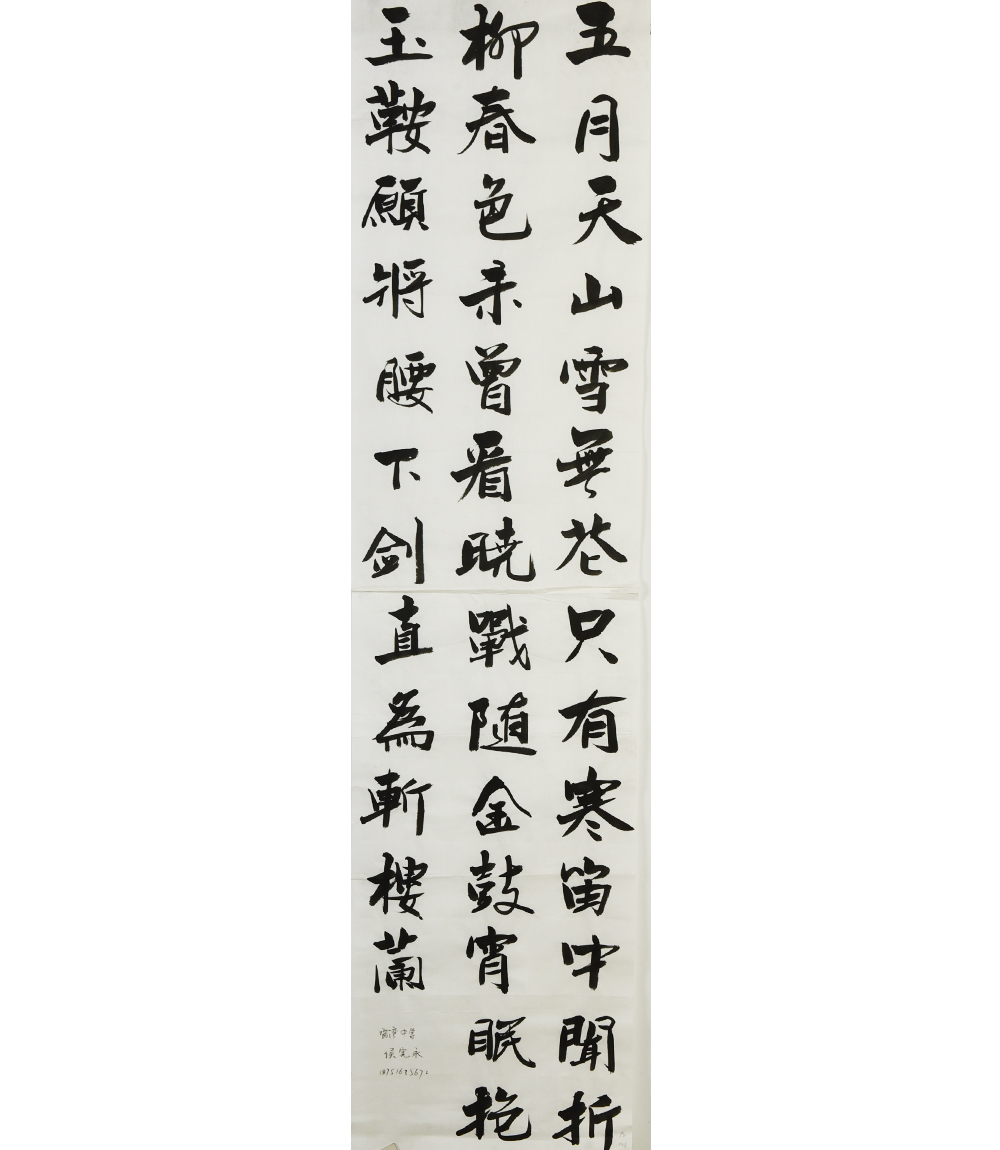 五月天山雪無花只有寒笛中聞折
柳春色未曾看曉戰随金鼓宵眠抱
玉鞍願將腰下剑直為斬樓蘭
侯宪永